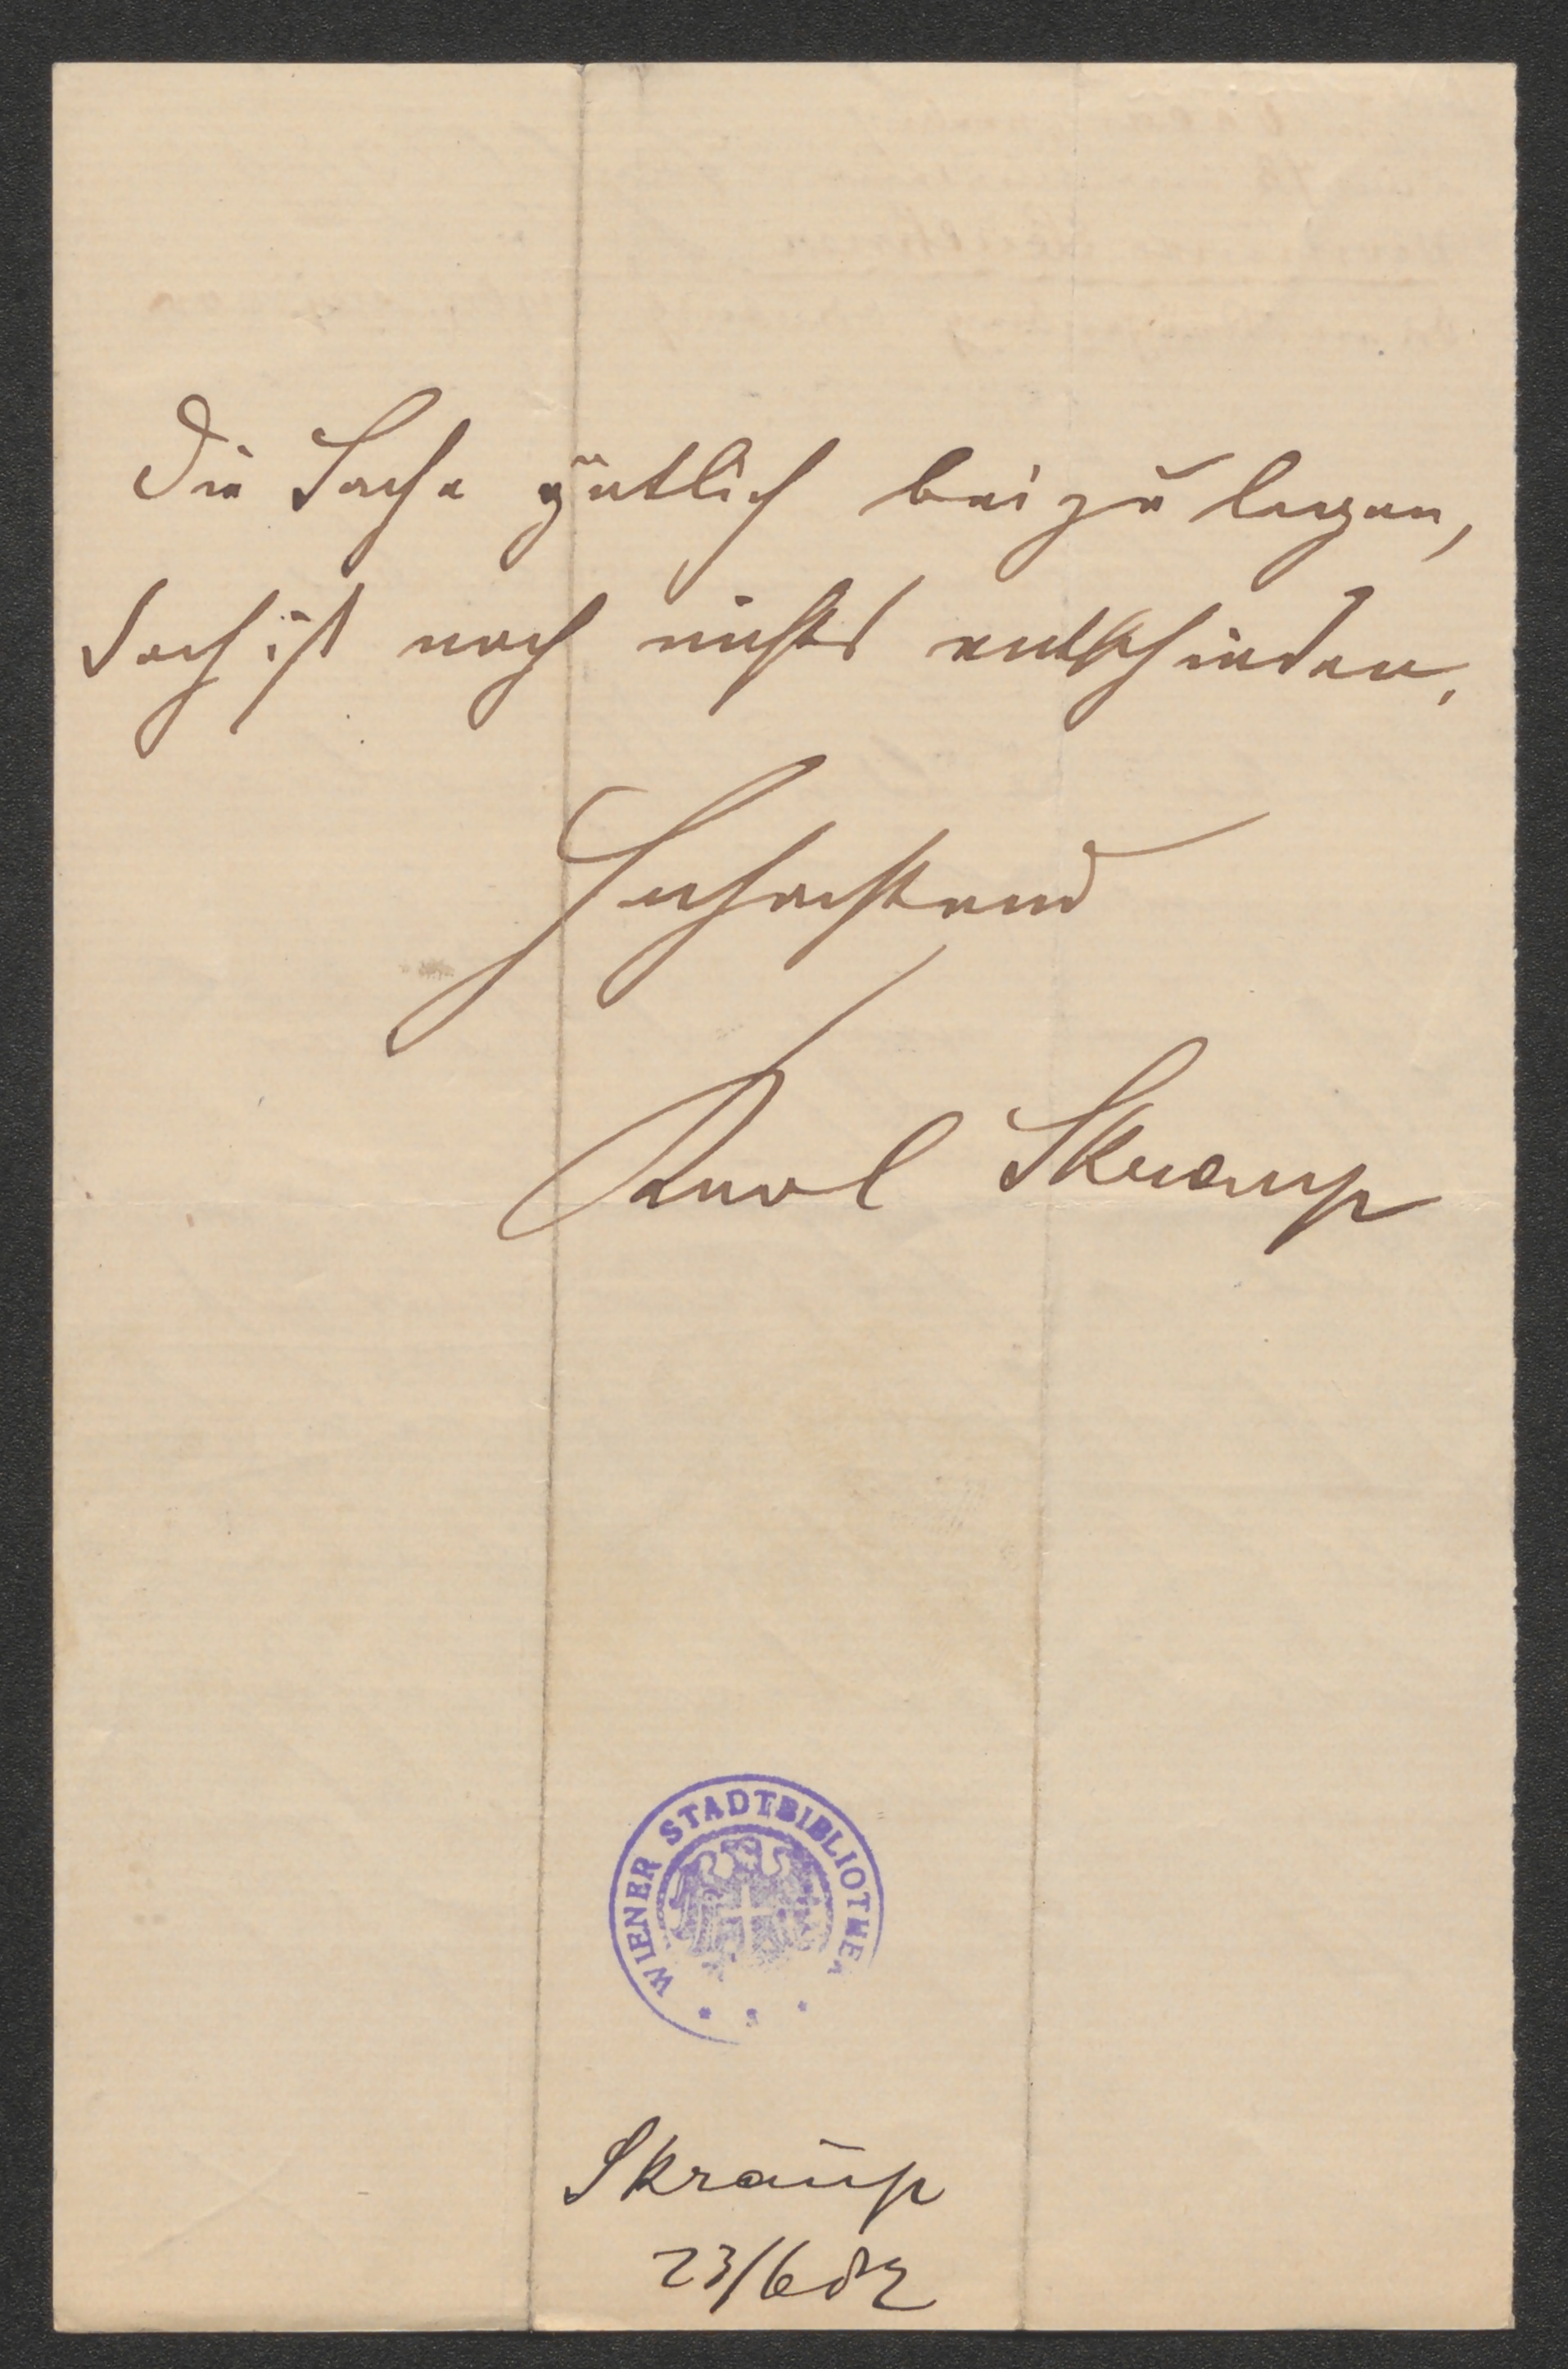 die Sache gütlich beizulegen,
doch ist noch nichts entschieden.
Hochachtend
Karl Skraup
WIENER STADTBIBLIOTHEK
Skraup
23/6 82